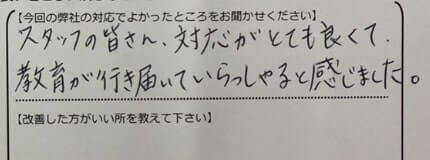 【今回の弊社の対応でよかったところをお聞かせください】
スタッフの皆さん、対応がとても良くて、
教育が行き届いていらっしゃると感じました。
【改善した方がいい所を教えて下さい】